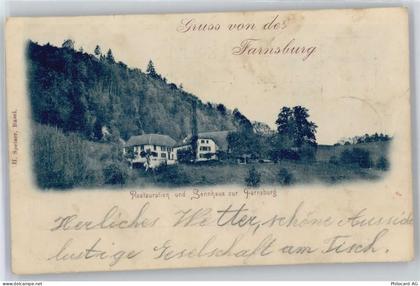 Gruss von der
Farnsburg
H. Spenser, Basel.
Restauration und Sennhaus zur Farnsburg
Herliches Wetter, schöne Aussicht
lustige Gesellschaft am Tisch.
PICCARD.AG